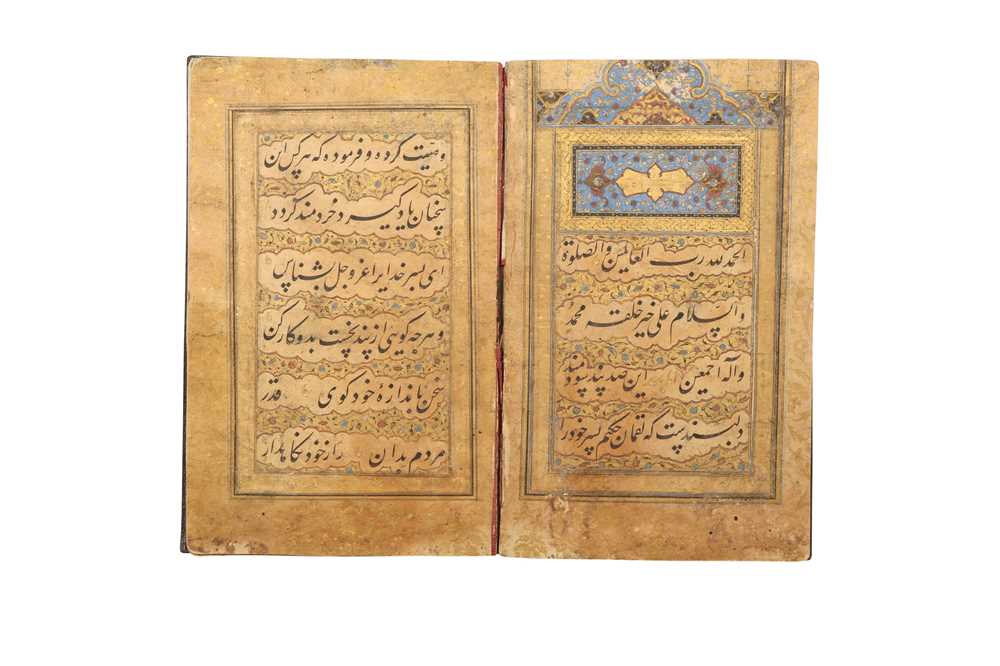 الحمدلله رب العالمین والصلوة
والسلام علی خیر خلقه محمد
وآله اجمعین این صد پند سودمند
دلبندیست که لقمان حکیم پسر خود را
وصیت کرده و فرموده که هر کس این
سخنان یاد گیرد خردمند کردد
ای پسر خدایرا عز و جل بشناس
و هر چه کویی از پند نخست بدو کار کن
سخن باندازهٔ خود کوی قدر
مردم بدان راز خود نکاهدار